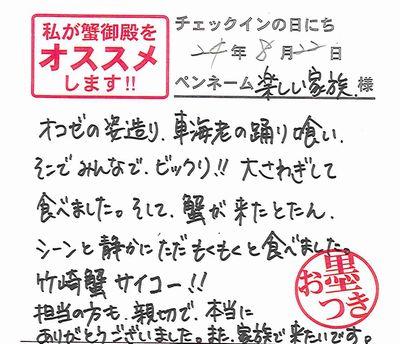 私が蟹御殿を
オススメ
します!!
チェックインの日にち
24年8月22日
ペンネーム楽しい家族.様
オコゼの姿造り.車海老の踊り喰い.
そこでみんなで.ビックリ!!大さわぎして
食べました。そして.蟹が来たとたん.
シーンと静かにただもくもくと食べました。
竹崎蟹サイコー!!
担当の方も.親切で.本当に
ありがとうございました。また.家族で来たいです。
お墨
つき